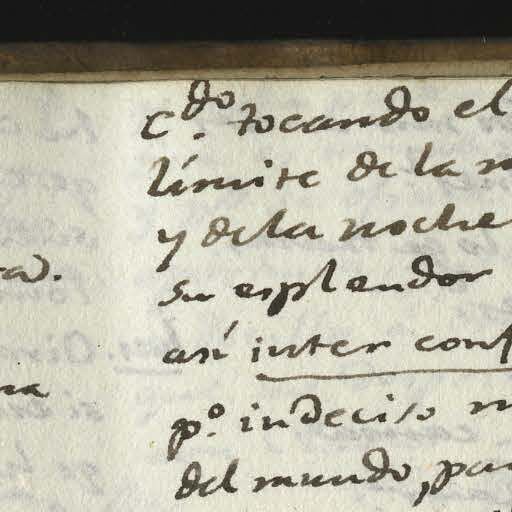 c.do tocando el
límite de la
y de la noche
su esplendor
así inter conf
p.o indeciso
del mundo, par